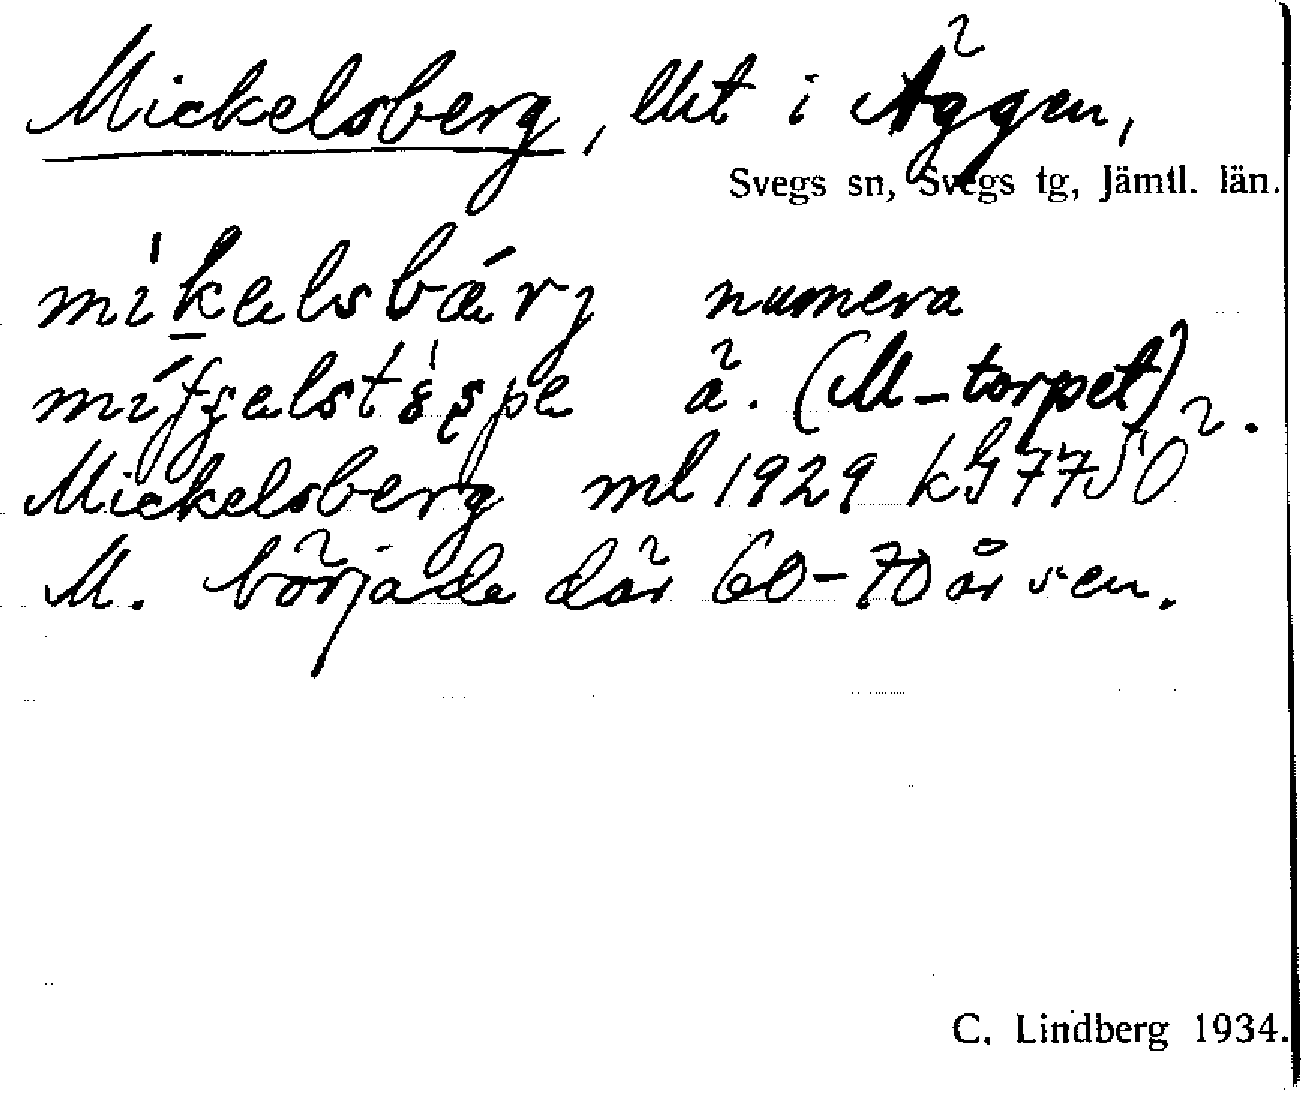 Mickelsberg, llllt i Äggen,
Svegs sn, Svegs tg, Jämtl. län.
numera
ä. (M-torpet).
Mickelsberg ml 1929 kG 7750
M. började där 60-70 år sen.
C. Lindberg 1934.